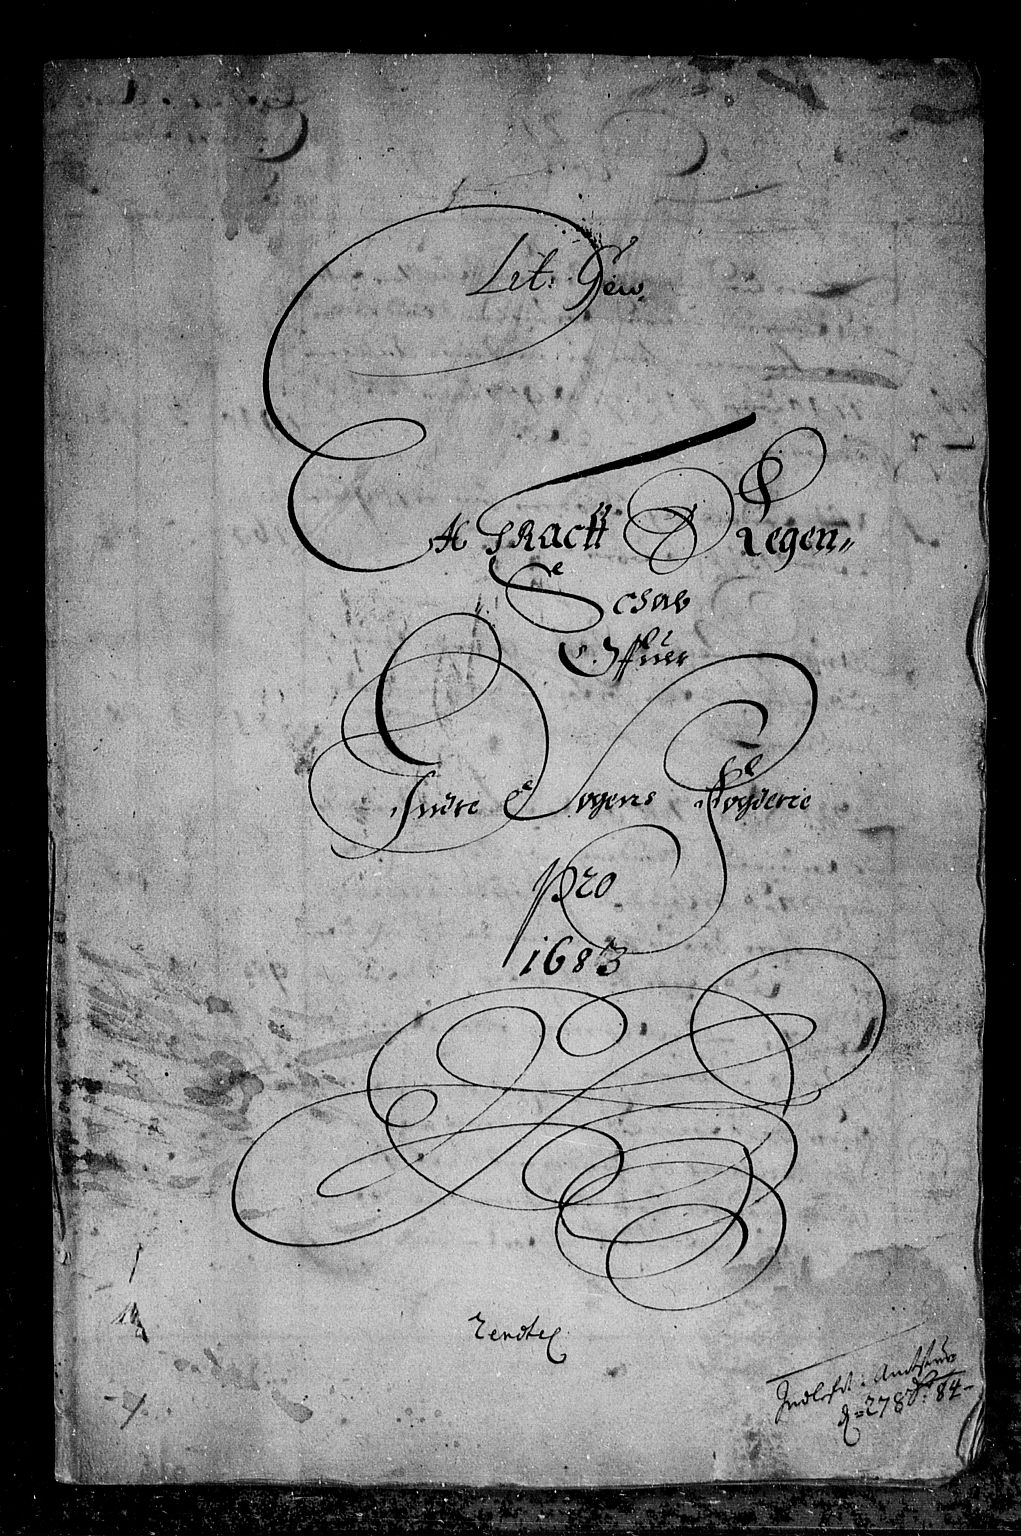 Lit: Gew.
Extractt Regen„
Schab
Offuer
Indre Sogens Fogderie
pro
1683
Indleft: Amtstuv
d=278br: 84-